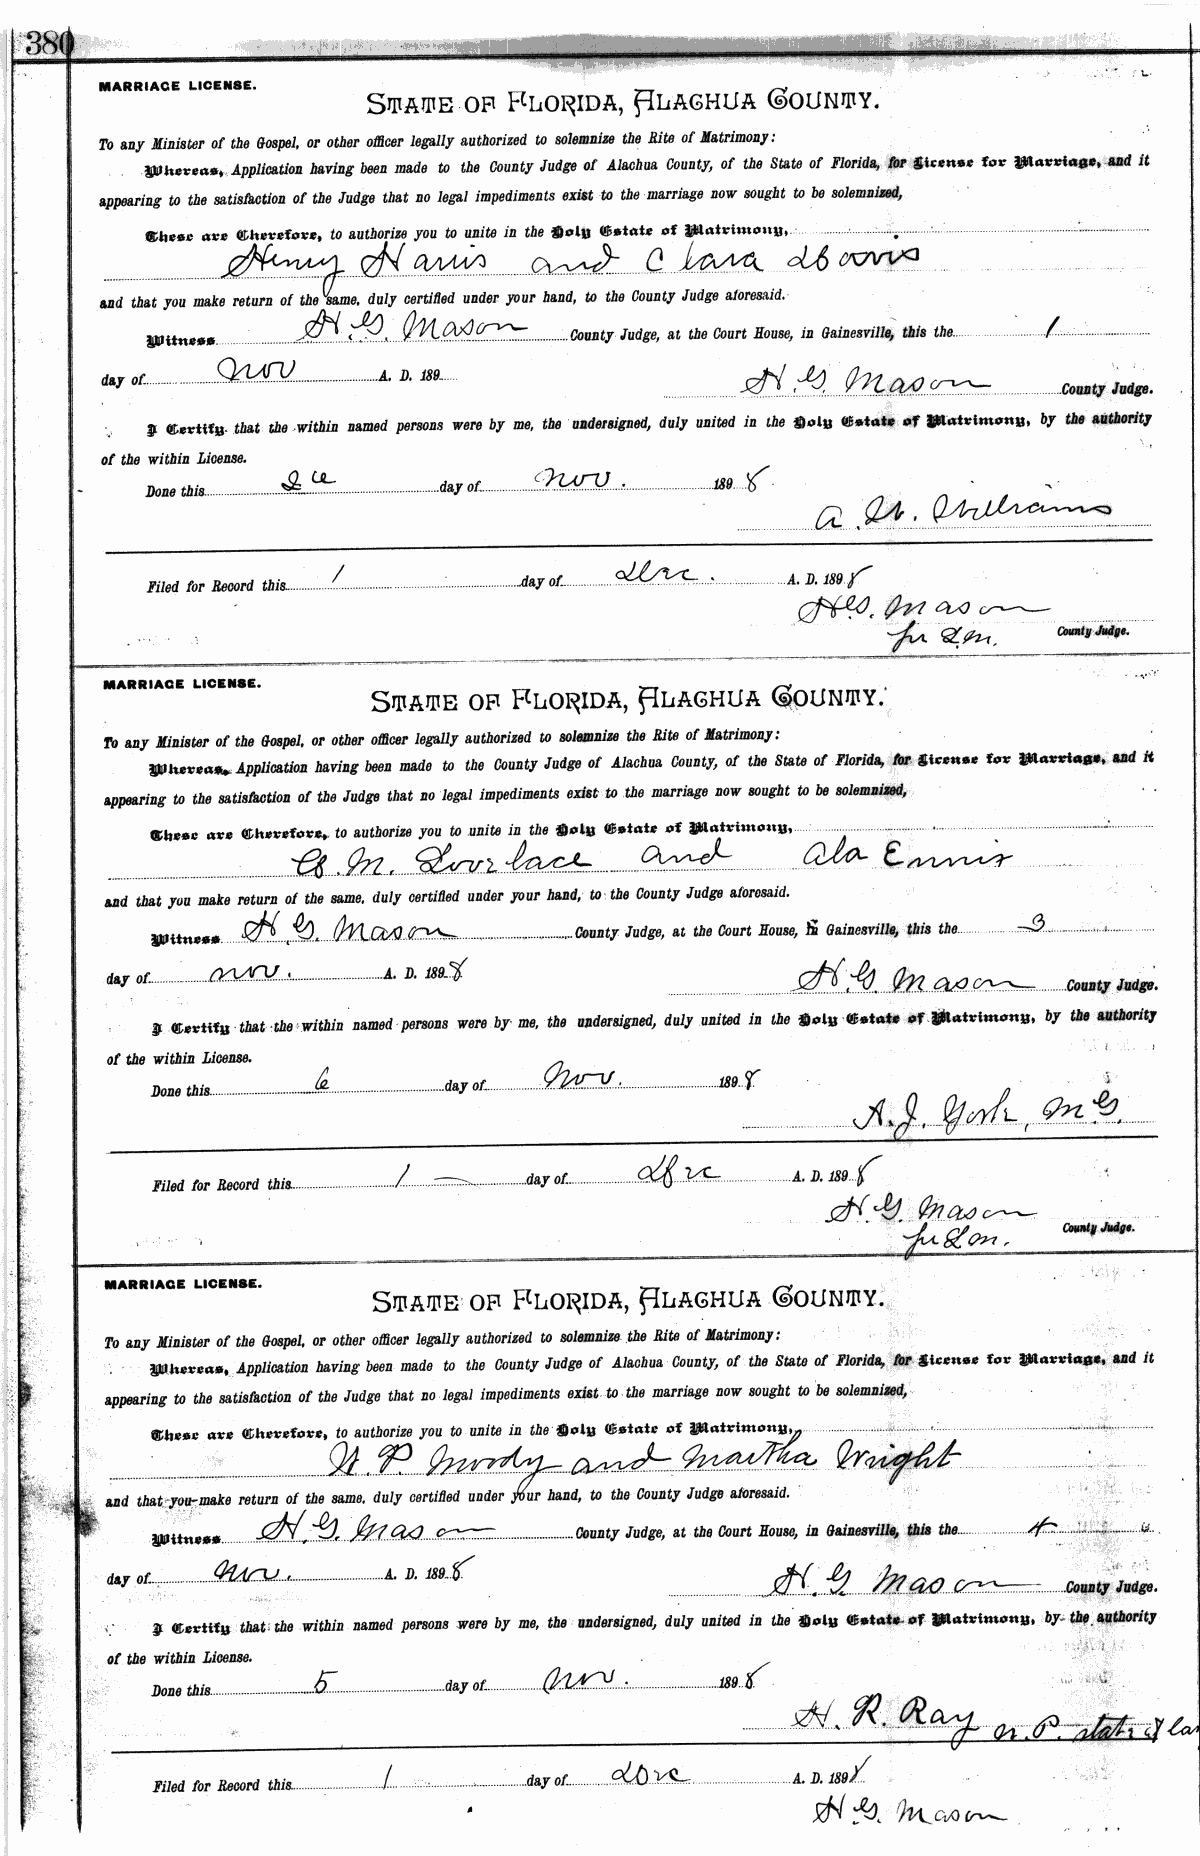 380
MARRIAGE LICENSE.
STATE OF FLORIDA, ALACHUA COUNTY.
To any Minister of the Gospel, or other officer legally authorized to solemnize the Rite of Matrimony:
Whereas, Application having been made to the County Judge of Alachua County, of the State of Florida, for License for Marriage, and it
appearing to the satisfaction of the Judge that no legal impediments exist to the marriage now sought to be solemnized,
These are Therefore, to authorize you to unite in the Holy Estate of Matrimony,
Henry Harris and Clara Davis
and that you make return of the same, duly certified under your hand, to the County Judge aforesaid.
Witness H. G. Mason County Judge, at the Court House, in Gainesville, this the 1
day of Nov A. D. 189
H. G. Mason County Judge.
I Certify that the within named persons were by me, the undersigned, duly united in the Holy Estate of Matrimony, by the authority
of the within License.
Done this day of Nov. 1898
A. W. Williams
Filed for Record this 1 day of Dec. A. D. 1898
H. G. Mason
County Judge.
MARRIAGE LICENSE.
STATE OF FLORIDA, ALACHUA COUNTY.
To any Minister of the Gospel, or other officer legally authorized to solemnize the Rite of Matrimony:
Whereas, Application having been made to the County Judge of Alachua County, of the State of Florida, for License for Marriage, and it
appearing to the satisfaction of the Judge that no legal impediments exist to the marriage now sought to be solemnized,
These are Therefore, to authorize you to unite in the Holy Estate of Matrimony,
M. Lovelace and Ala Ennis
and that you make return of the same, duly certified under your hand, to the County Judge aforesaid.
Witness H. G. Mason County Judge, at the Court House, in Gainesville, this the 3
day of Nov. A. D. 1898
H. G. Mason County Judge.
I Certify that the within named persons were by me, the undersigned, duly united in the Holy Estate of Matrimony, by the authority
of the within License.
Done this 6 day of Nov. 1898
A. J. York, M G.
Filed for Record this 1 day of Dec A. D. 1898
H. G. Mason
County Judge.
MARRIAGE LICENSE.
STATE OF FLORIDA, ALACHUA COUNTY.
To any Minister of the Gospel, or other officer legally authorized to solemnize the Rite of Matrimony:
Whereas, Application having been made to the County Judge of Alachua County, of the State of Florida, for License for Marriage, and it
appearing to the satisfaction of the Judge that no legal impediments exist to the marriage now sought to be solemnized,
These are Therefore, to authorize you to unite in the Holy Estate of Matrimony,
P. Moody and Martha Wright
and that you make return of the same, duly certified under your hand, to the County Judge aforesaid.
Witness H. G. Mason County Judge, at the Court House, in Gainesville, this the 4
day of Nov. A. D. 1898
H. G. Mason County Judge.
I Certify that the within named persons were by me, the undersigned, duly united in the Holy Estate of Matrimony, by the authority
of the within License.
Done this 5 day of Nov. 1898
H. R. Ray N. P. state
Filed for Record this 1 day of Dec A. D. 1898
H. G. Mason